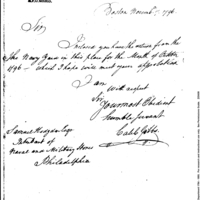 Boston Novemb. 1, 1796
Sir
Inclosed you have the returns from the
Navy Yard in this place for the Month of October
1796 — which I hope will meet your approbation
I am
with respect
Sir Your most Obedient
Humble Servant
Caleb Gibbs
Samuel Hodgdon Esqr
Intendant of
Naval and Military Stores
Philadelphia